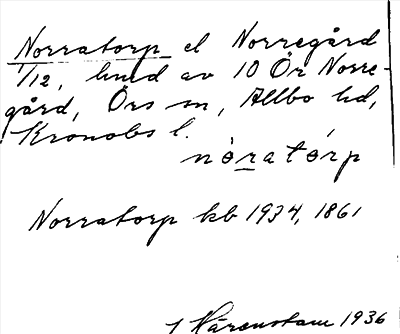 Norratorp el Norregård
1/12, hmd av 10 Ör Norre-
gård, Örs sn, Allbo hd,
Kronobs l.
nòratórp
Norratorp kb 1934, 1861
1936